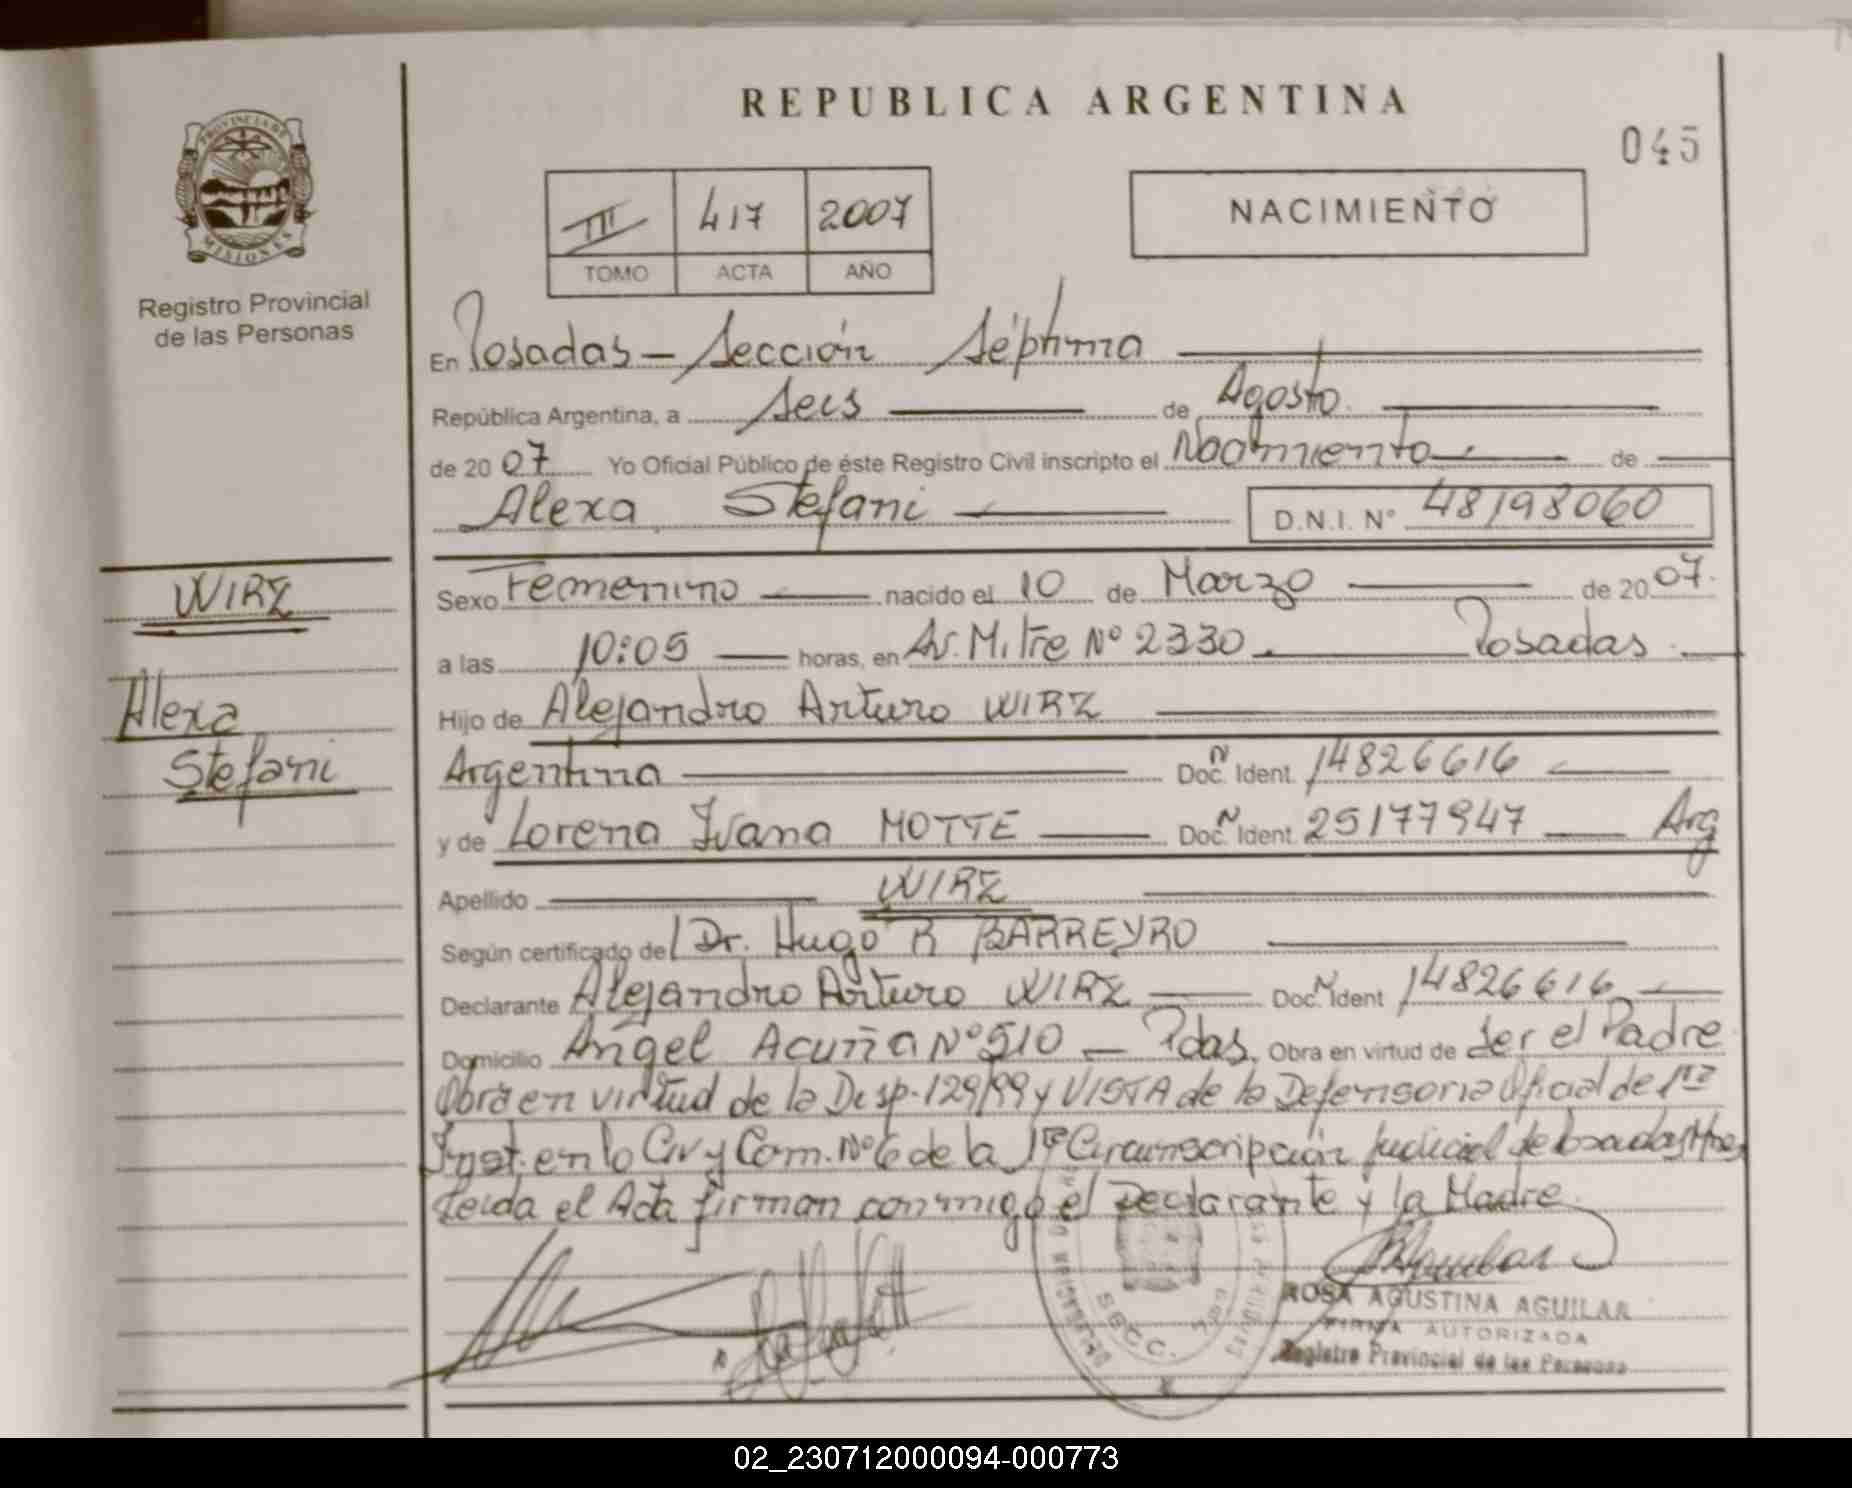 REPUBLICA ARGENTINA
045
PROVINCIA DE
MISIONES
Registro Provincial
de las Personas
III 417 2007
TOMO ACTA AÑO
NACIMIENTO
En Posadas - Sección Séptima
República Argentina, a Seis de Agosto.
de 2007 Yo Oficial Público de éste Registro Civil inscripto el Nacimiento de
Alexa Stefani D.N.I. N° 48198060
WIRZ
Alexa
Stefani
Sexo Femenino nacido el 10 de Marzo de 2007.
a las 10:05 horas, en Av. Mitre Nº 2330 Posadas.
Hijo de Alejandro Arturo WIRZ
Argentina Doc. N Ident. 14826616
y de Lorena Ivana MOTTE Doc. N Ident. 25177947 Arg
Apellido WIRZ
Según certificado del Dr. Hugo R BARREYRO
Declarante Alejandro Arturo WIRZ Doc. N Ident 14826616
Domicilio Angel Acuña Nº 510 - Pdas. Obra en virtud de Ser el Padre
Obra en virtud de la Disp. 129/99 y VISTA de la Defensoria Oficial de 1ra
Inst. en lo Civ y Com. Nº 6 de la 1ra Circunscripción Judicial de Posadas Mnes
Leida el Acta firman conmigo el Declarante y la Madre.
SECC.
ROSA AGUSTINA AGUILAR
FIRMA AUTORIZADA
Registro Provincial de las Personas
02_230712000094-000773